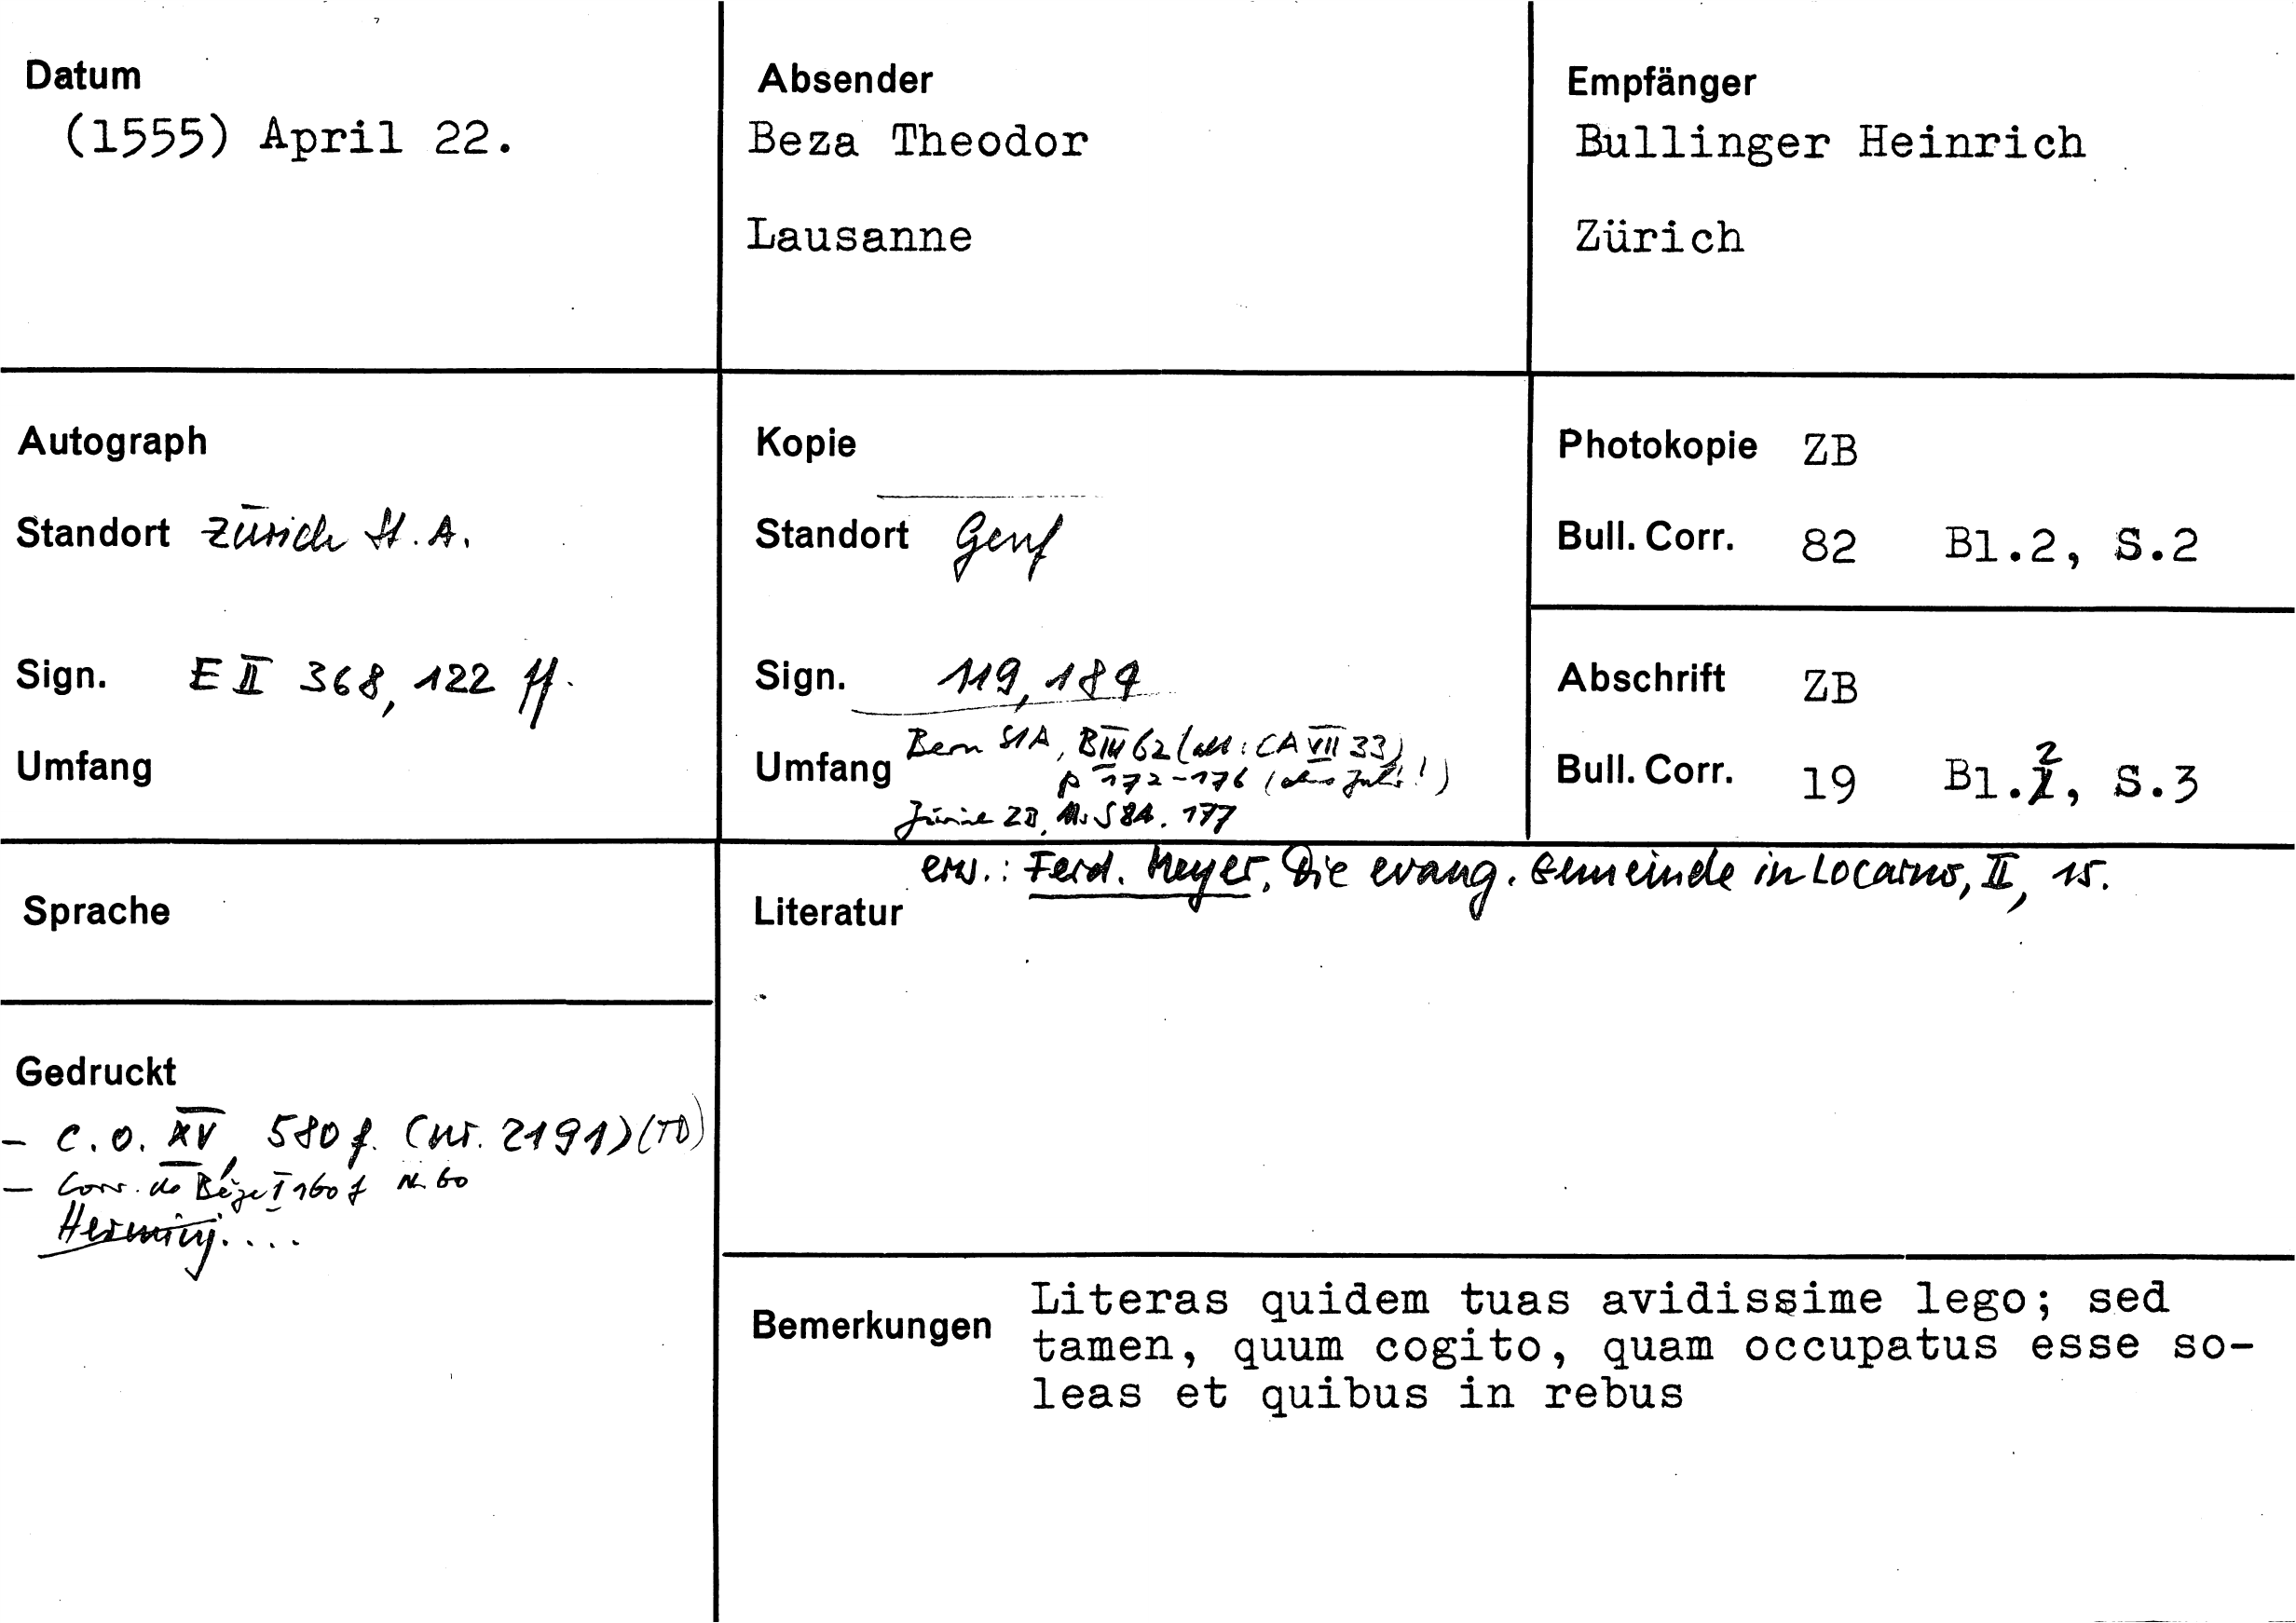 Datum
(1555) April 22.
Absender
Beza Theodor
Lausanne
Empfänger
Bullinger Heinrich
Zürich
Autograph
Standort Zürich St. A.
Sign. E II 368, 122 ff.
Umfang
Kopie
Standort Genf
Sign. 119, 189
Bern StA, B III 62 (alt: CA VII 33)
Umfang p 172-176
177
Photokopie ZB
Bull. Corr. 82 Bl.2, S.2
Abschrift ZB
Bull. Corr. 19 Bl.2, S.3
Sprache
erw.: Ferd. Meyer, Die evang. Gemeinde in Locarno, II, 15.
Literatur
Gedruckt
- C.O. XV, 580 f. (nr. 2191) (TD)
- Corr. de Bèze I 160 f N. 60
Herminj....
Bemerkungen
Literas quidem tuas avidissime lego; sed
tamen, quum cogito, quam occupatus esse so-
leas et quibus in rebus